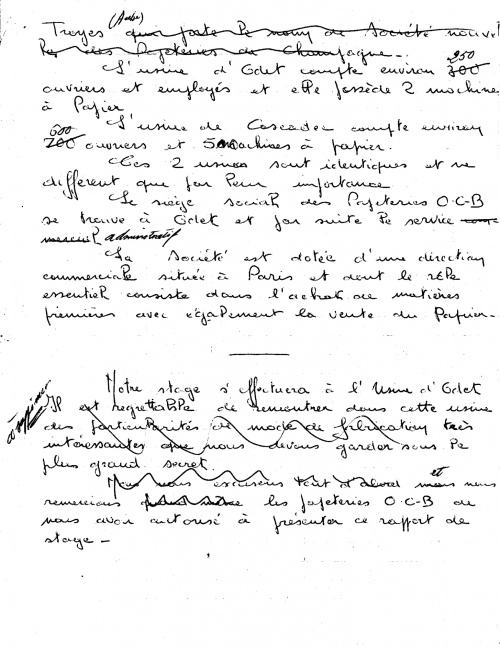 (Aube)
Troyes qui porte le nom de Société nouvel
le des Papeteries de Champagne.
L'usine d'Odet compte environ 300 250
ouvriers et employés et elle possède 2 machine
à Papier
L'usine de Cascadec compte environ
600
700 ouvriers et 5 machines à papier.
Ces 2 usines sont identiques et ne
different que par leur importance
Le siège social des Papeteries O.C.B
se trouve à Odet et par suite le service
administratif
La Société est dotée d'une direction
commerciale située à Paris et dont le rôle
essentiel consiste dans l'achat de matières
premières avec également la vente du Papier.
Notre stage s'effectuera à l'Usine d'Odet
à supprimer
Il est regrettable de rencontrer dans cette usine
des particularités de mode de fabrication très
intéressantes que nous devons garder sous le
plus grand secret.
Nous nous excusons tout d'abord mais et nous
remercions les papeteries O.C.B de
nous avoir autorisé à présenter ce rapport de
stage -